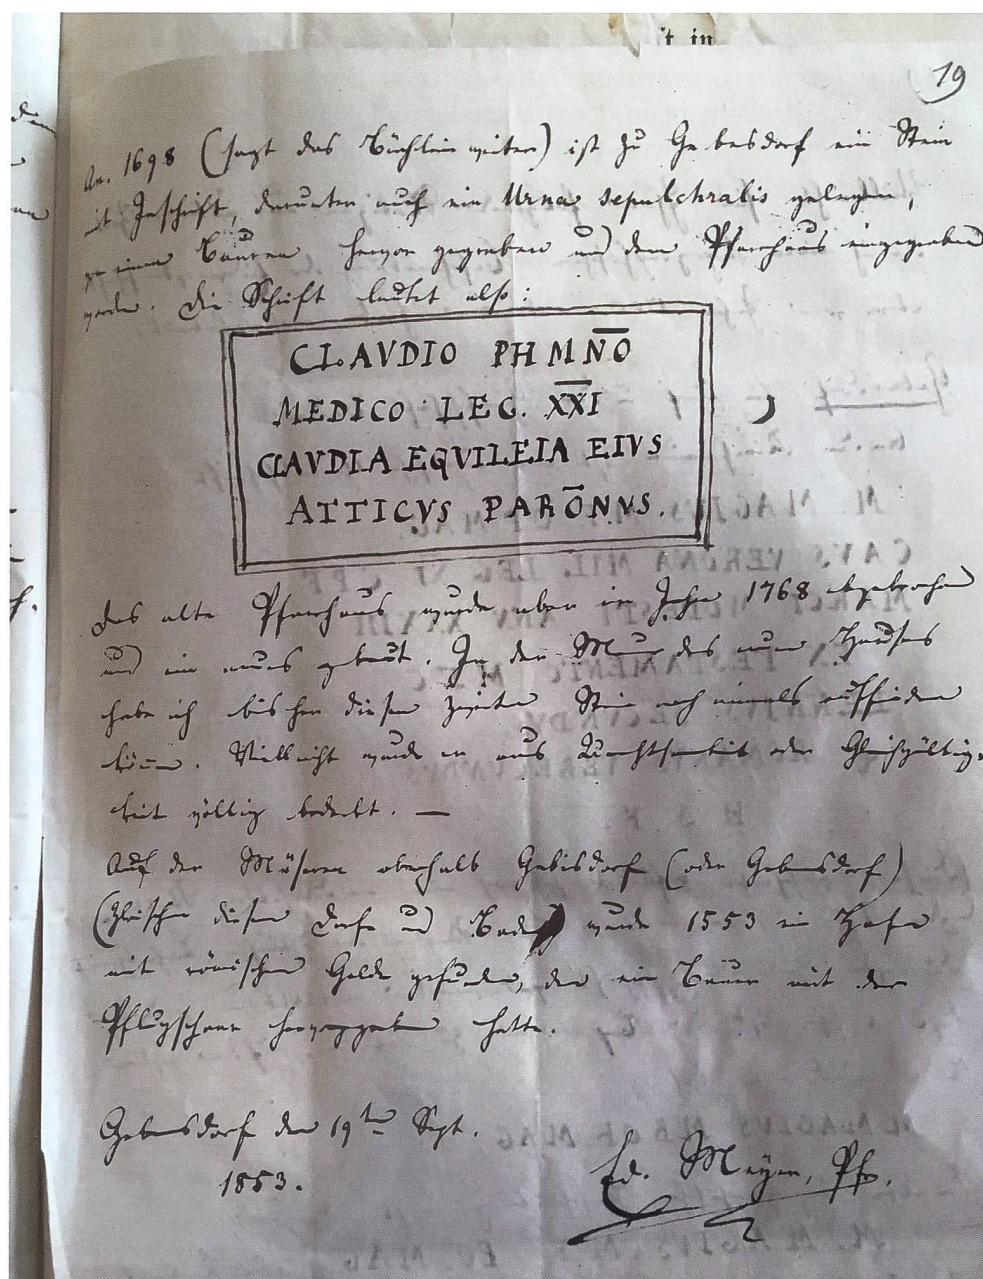 't in
19
Ao. 1698 (sagt das Büchlein weiter) ist zu Gebesdorf ein Stein
mit Inschrift, darunter auch ein Urna sepulchralis gelegen,
von einem Bauren hervor gegraben und dem Pfarrhaus eingegraben
worden. Die Schrift lautet also:
CLAVDIO PHMN̅O
MEDICO LEG. X̅X̅I
CLAVDIA EQVILEIA EIVS
ATTICVS PARO̅NVS.
Das alte Pfarrhaus wurde aber im Jahr 1768 abgebrochen
und ein neues gebaut. In der Mauer des neuen Hauses
habe ich bisher diesen zweiten Stein noch niemals auffinden
können. Vielleicht wurde er aus Unachtsamkeit oder Gleichgültig-
keit völlig bedeckt. —
Auf der Müseren oberhalb Gebisdorf (oder Gebensdorf)
(zwischen diesem Dorfe und Baden) wurde 1553 ein Hafen
mit römischem Gelde gefunden, den ein Bauer mit der
Pflugschaar hervorgegraben hatte.
Gebensdorf den 19ten Sept.
1853.
Ed. Meyer, Pfr.